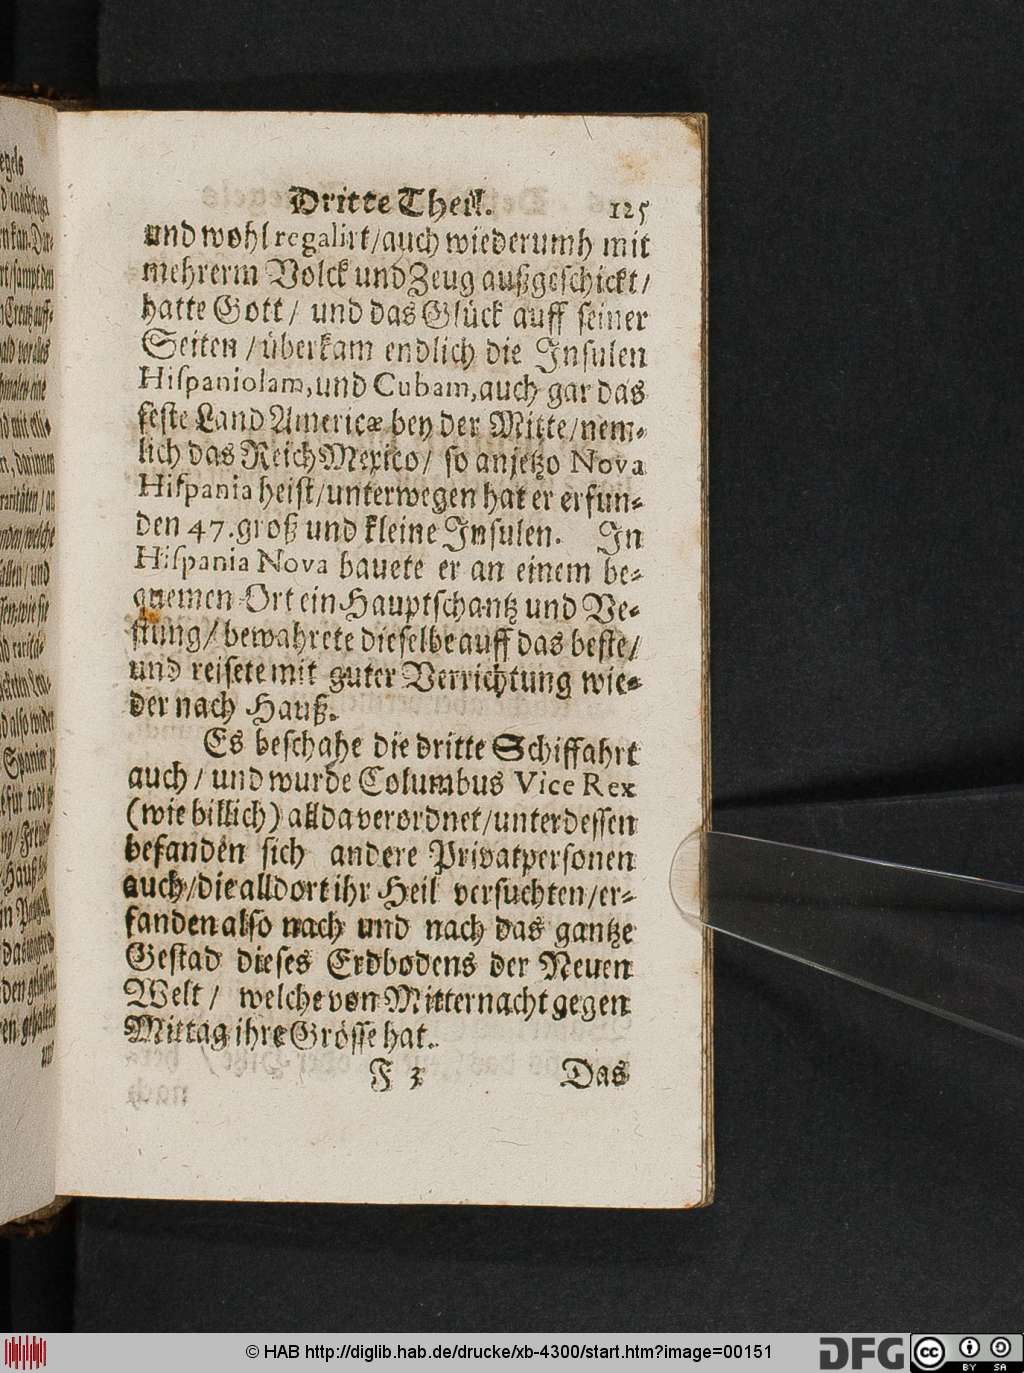 Dritte Theil. 125
und wohl regalirt/auch wiederumh mit
mehrerm Volck und Zeug außgeschickt/
hatte Gott/ und das Glück auff seiner
Seiten/überkam endlich die Insulen
Hispaniolam, und Cubam, auch gar das
feste Land Americæ bey der Mitte/nem-
lich das Reich Mexico/ so anjetzo Nova
Hispania heist/unterwegen hat er erfun-
den 47. groß und kleine Insulen. In
Hispania Nova bauete er an einem be-
quemen Ort ein Hauptschantz und Ve-
stung/bewahrete dieselbe auff das beste/
und reisete mit guter Verrichtung wie-
der nach Hauß.
Es beschahe die dritte Schiffahrt
auch/ und wurde Columbus Vice Rex
(wie billich) allda verordnet/unterdessen
befanden sich andere Privatpersonen
auch/die alldort ihr Heil versuchten/er-
fanden also nach und nach das gantze
Gestad dieses Erdbodens der Neuen
Welt/ welche von Mitternacht gegen
Mittag ihre Grösse hat.
F 3 Das
© HAB http://diglib.hab.de/drucke/xb-4300/start.htm?image=00151
DFG
cc
BY SA